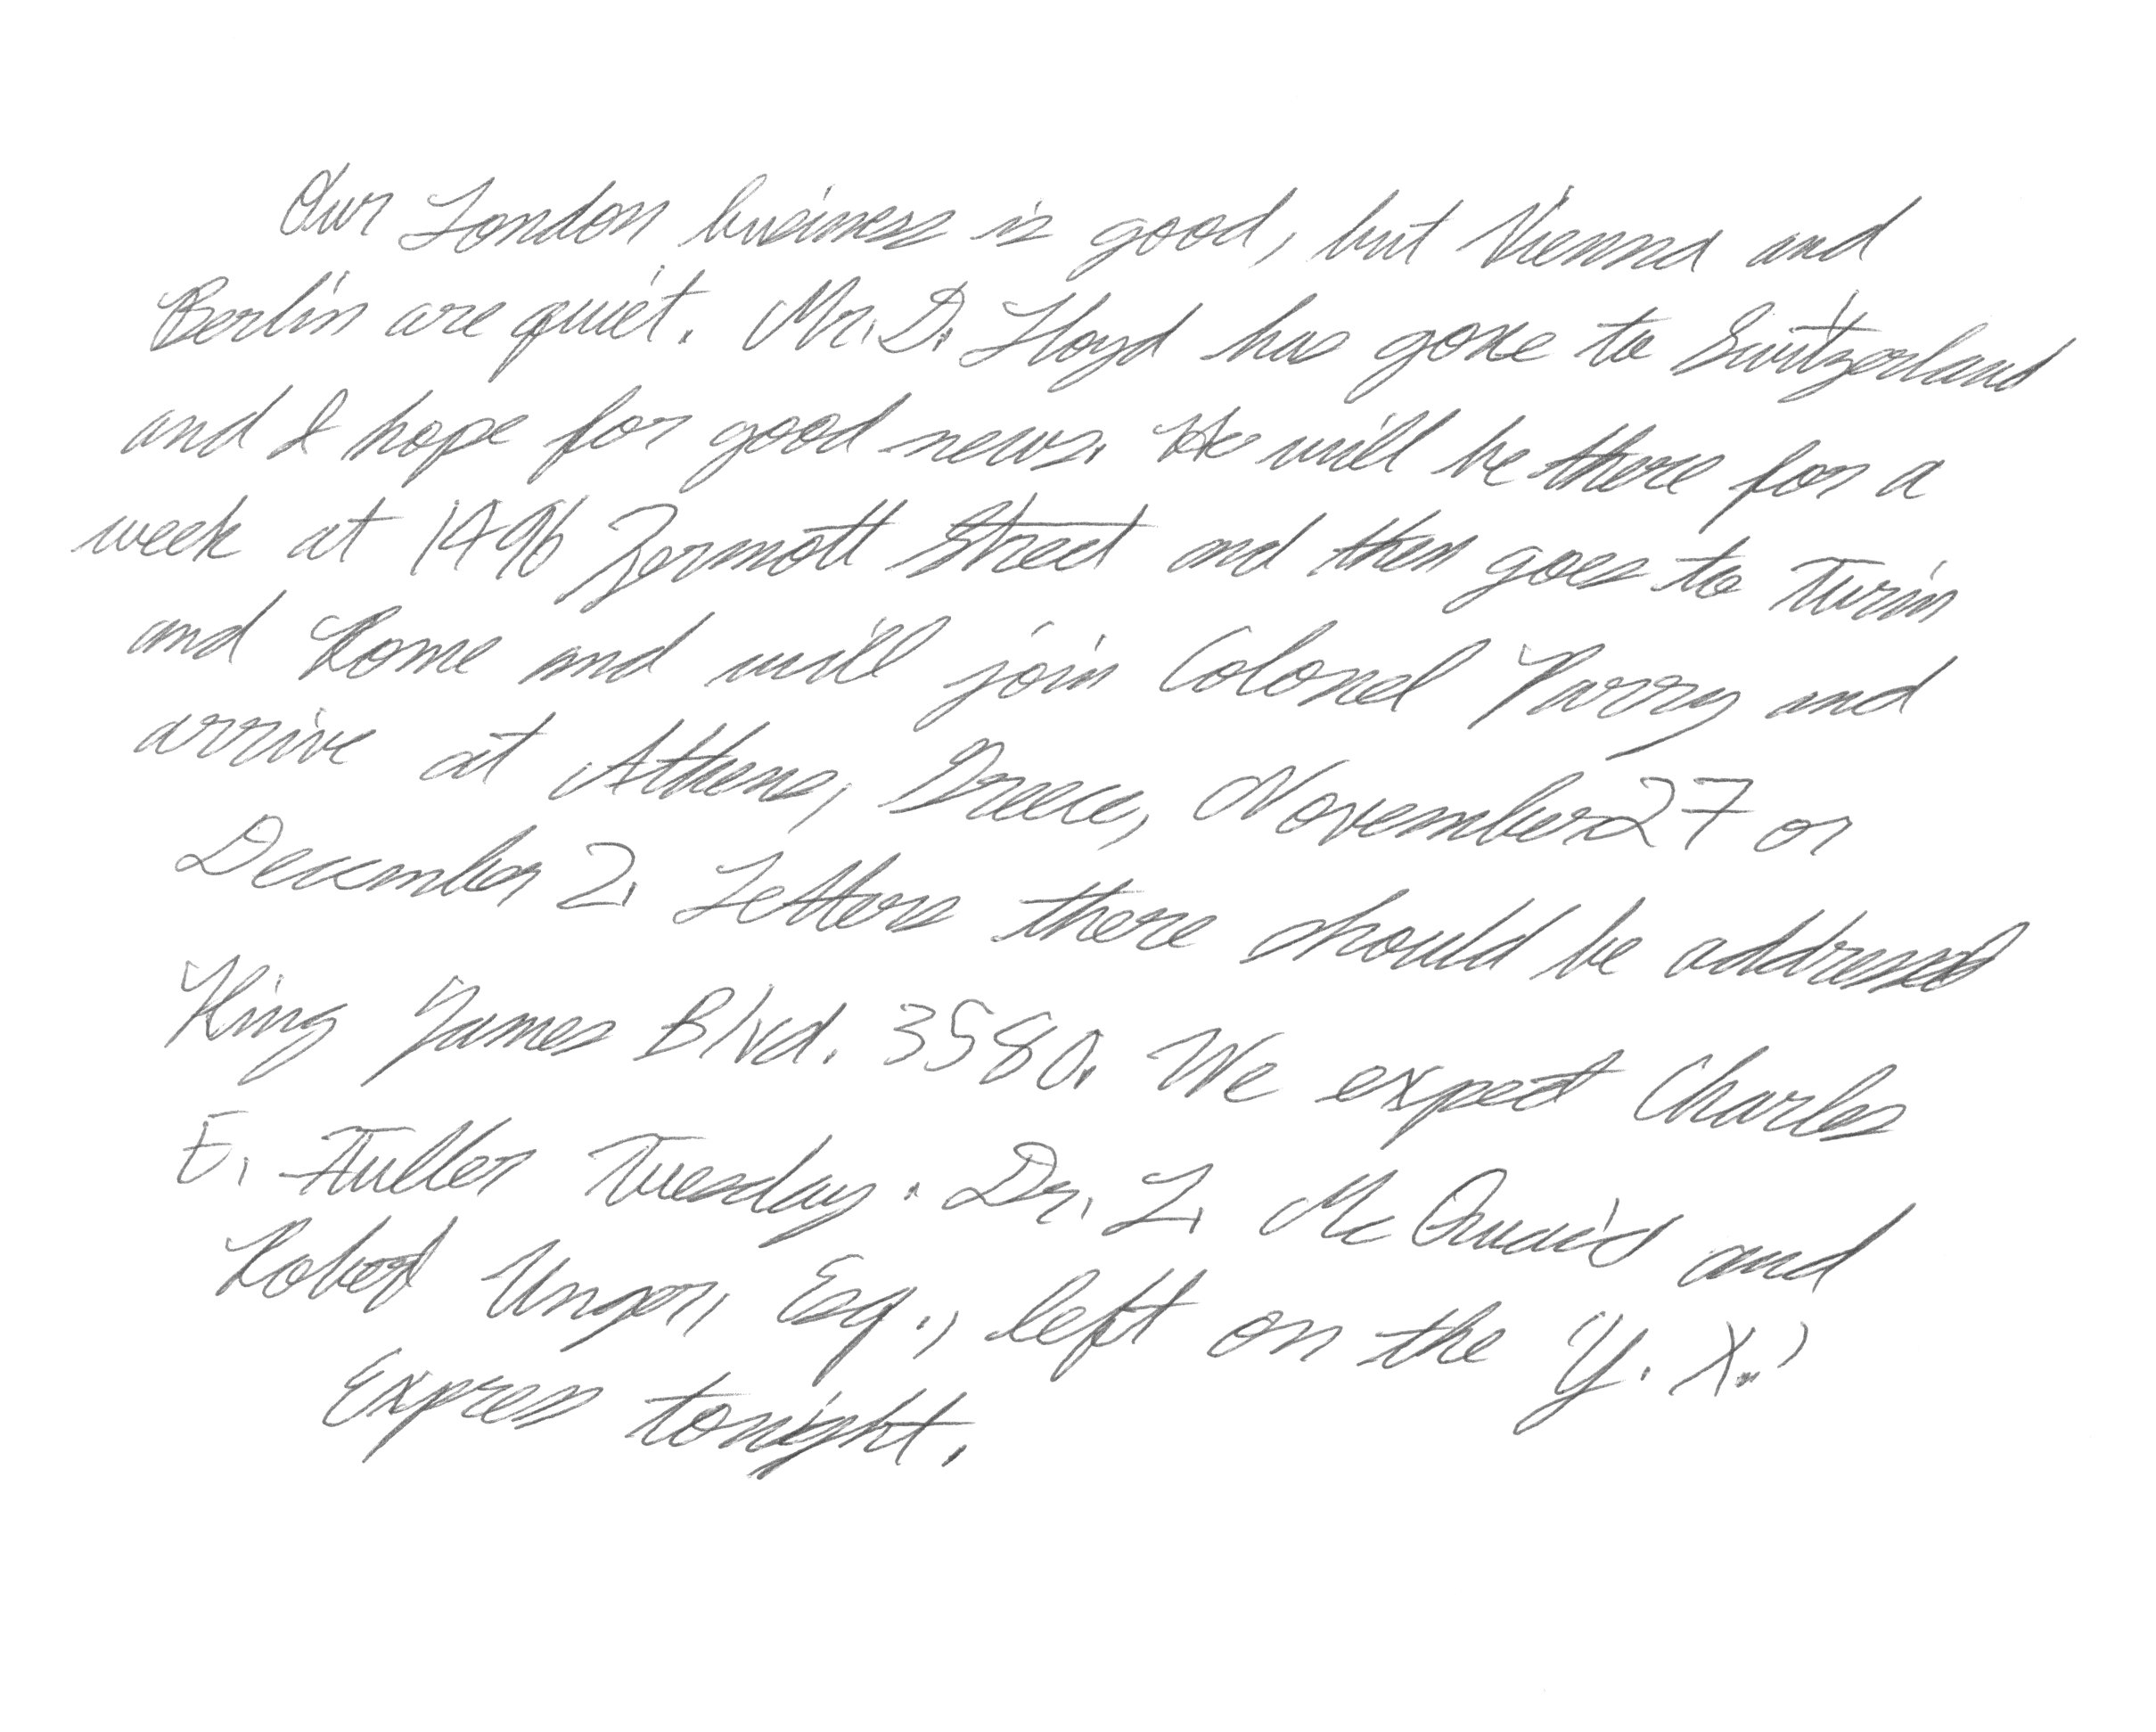 Our London business is good, but Vienna and
Berlin are quiet. Mr. D. Lloyd has gone to Switzerland
and I hope for good news. He will be there for a
week at 1496 Zermott Street and then goes to Turin
and Rome and will join Colonel Parry and
arrive at Athens, Greece, November 27 or
December 2. Letters there should be addressed
King James Blvd. 3580. We expect Charles
E. Fuller Tuesday. Dr. L. Mc Quaid and
Robert Unger, Esq., left on the Y. X.
Express tonight.